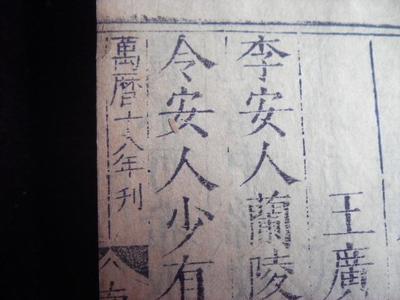 王廣
李安人蘭陵
令安人少有
萬曆十八年刊